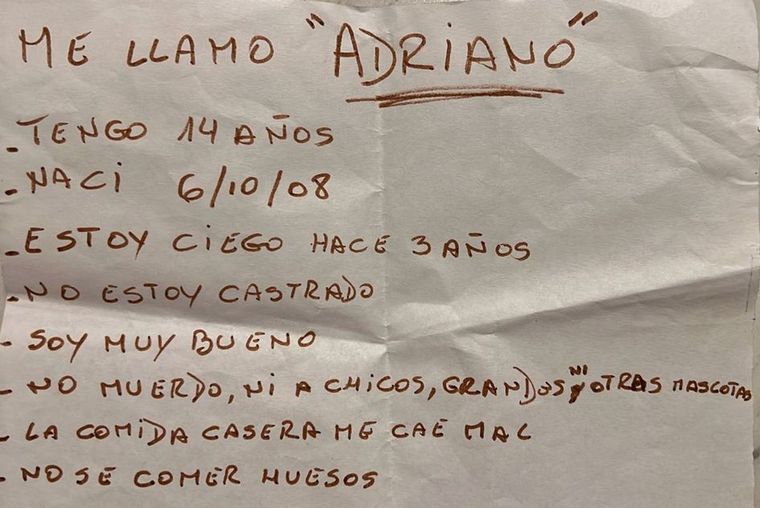 ME LLAMO "ADRIANO"
- TENGO 14 AÑOS
- NACI 6/10/08
- ESTOY CIEGO HACE 3 AÑOS
- NO ESTOY CASTRADO
- SOY MUY BUENO
- NO MUERDO, NI A CHICOS, GRANDES NI OTRAS MASCOTAS
- LA COMIDA CASERA ME CAE MAL
- NO SE COMER HUESOS